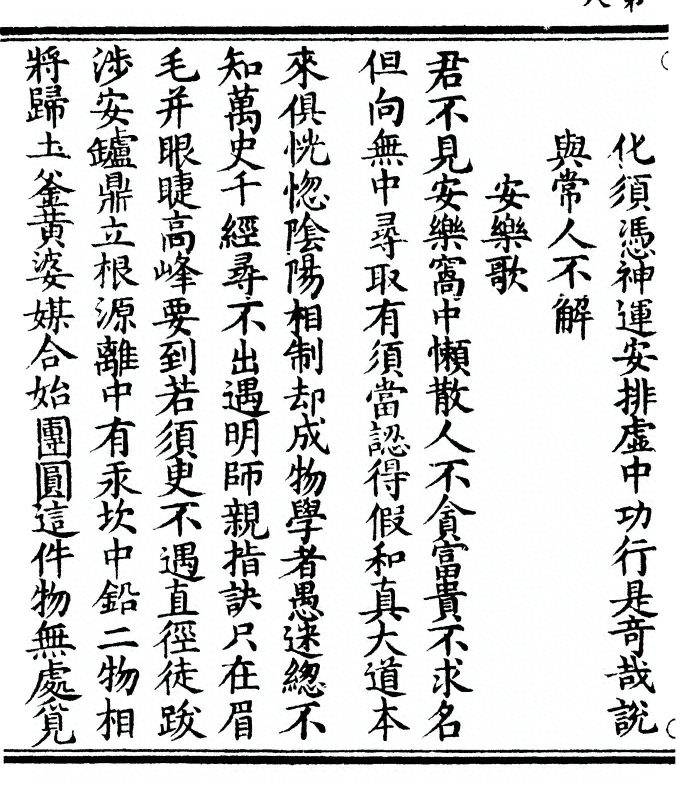 化須憑神運安排虛中功行是竒哉說
與常人不解
安樂歌
君不見安樂窩中懶散人不貪富貴不求名
但向無中尋取有須當認得假和真大道本
來俱恍惚陰陽相制却成物學者愚迷緫不
知萬史千經尋不出遇明師親指訣只在眉
毛并眼睫高峰要到若須臾不遇直徑徒跋
涉安鑪鼎立根源離中有汞坎中鉛二物相
將歸土釜黃婆媒合始團圓這件物無處覓